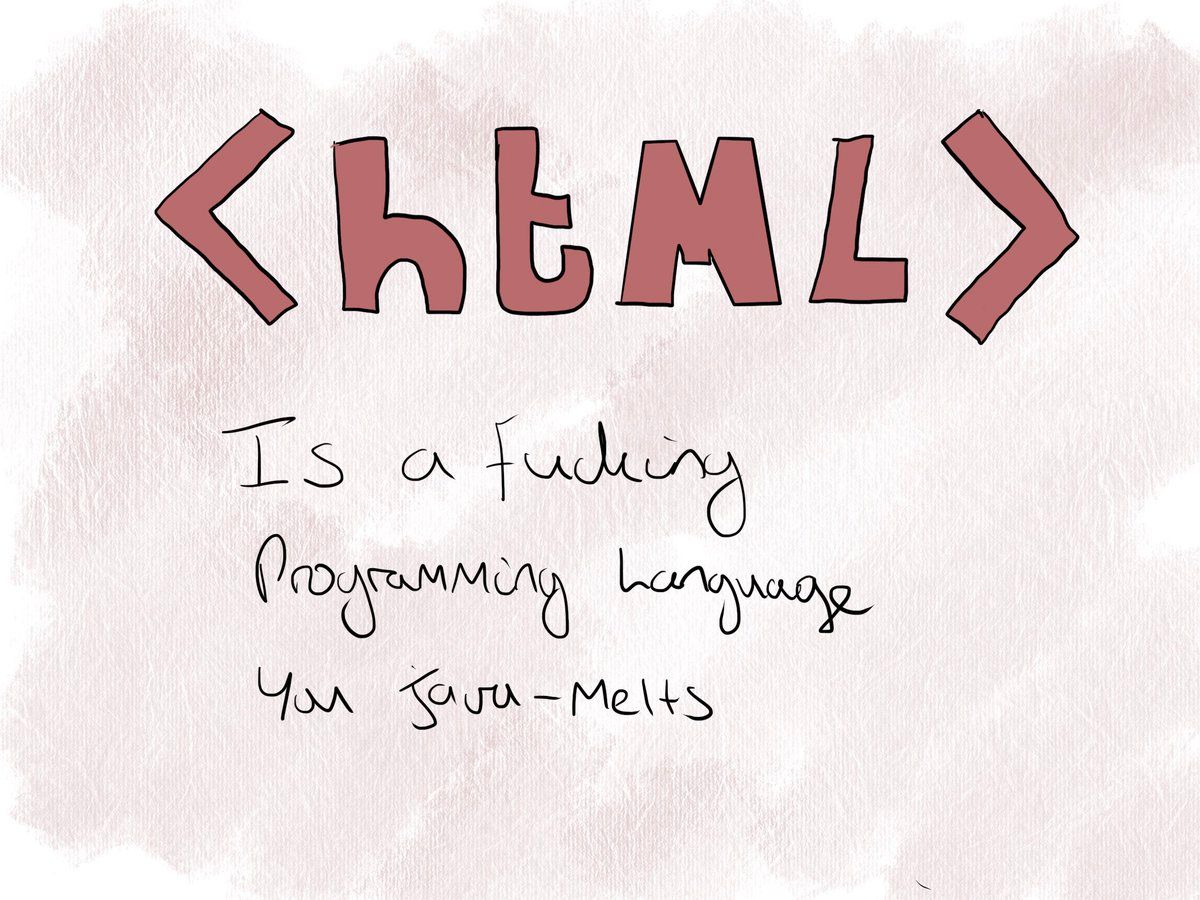 <htML>
Is a fucking
Programming Language
You java-Melts